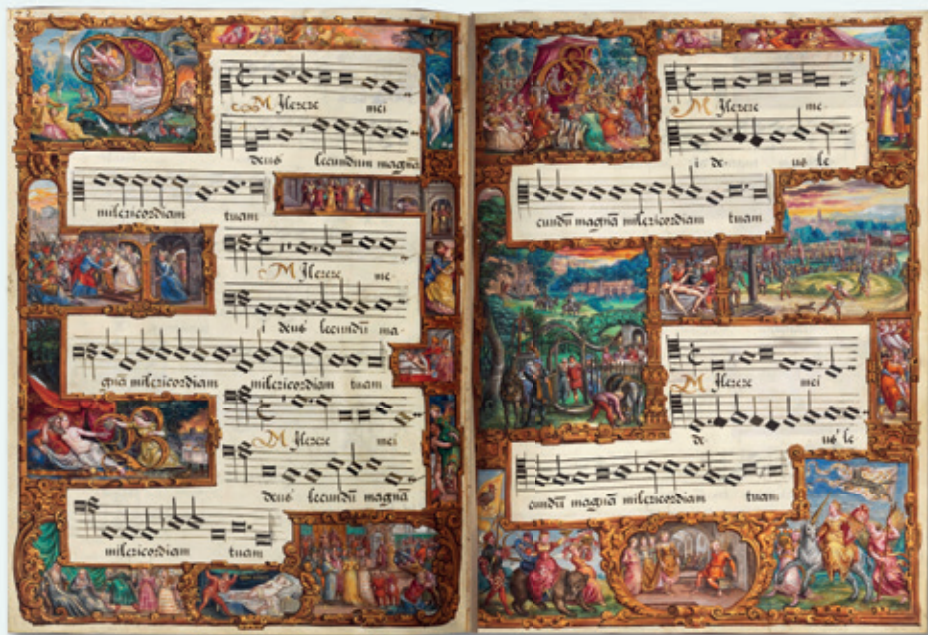 Miserere mei
deus secundum magnã
misericordiam tuam
Miserere me-
i deus secundũ ma-
gnã misericordiam misericordiam tuam
Miserere mei
deus secundũ magnã
misericordiam tuam
173
Miserere me-
i de- us se
cundũ magnã misericordiam tuam
Miserere mei
de- us se
cundũ magnã misericordiam tuam